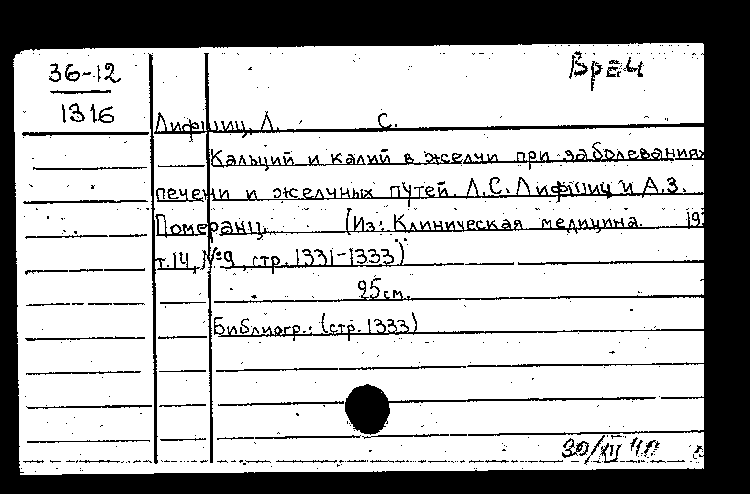 Врач
36-12
1316
Лифшиц, Л. С.
Кальций и калий в желчи при заболеваниях
печени и желчных путей. Л.С. Лифшиц и А.З.
Померанц. (Из: Клиническая медицина.
т.14, №9, стр. 1331-1333)
25 см.
Библиогр.: (стр. 1333)
30/XII 40